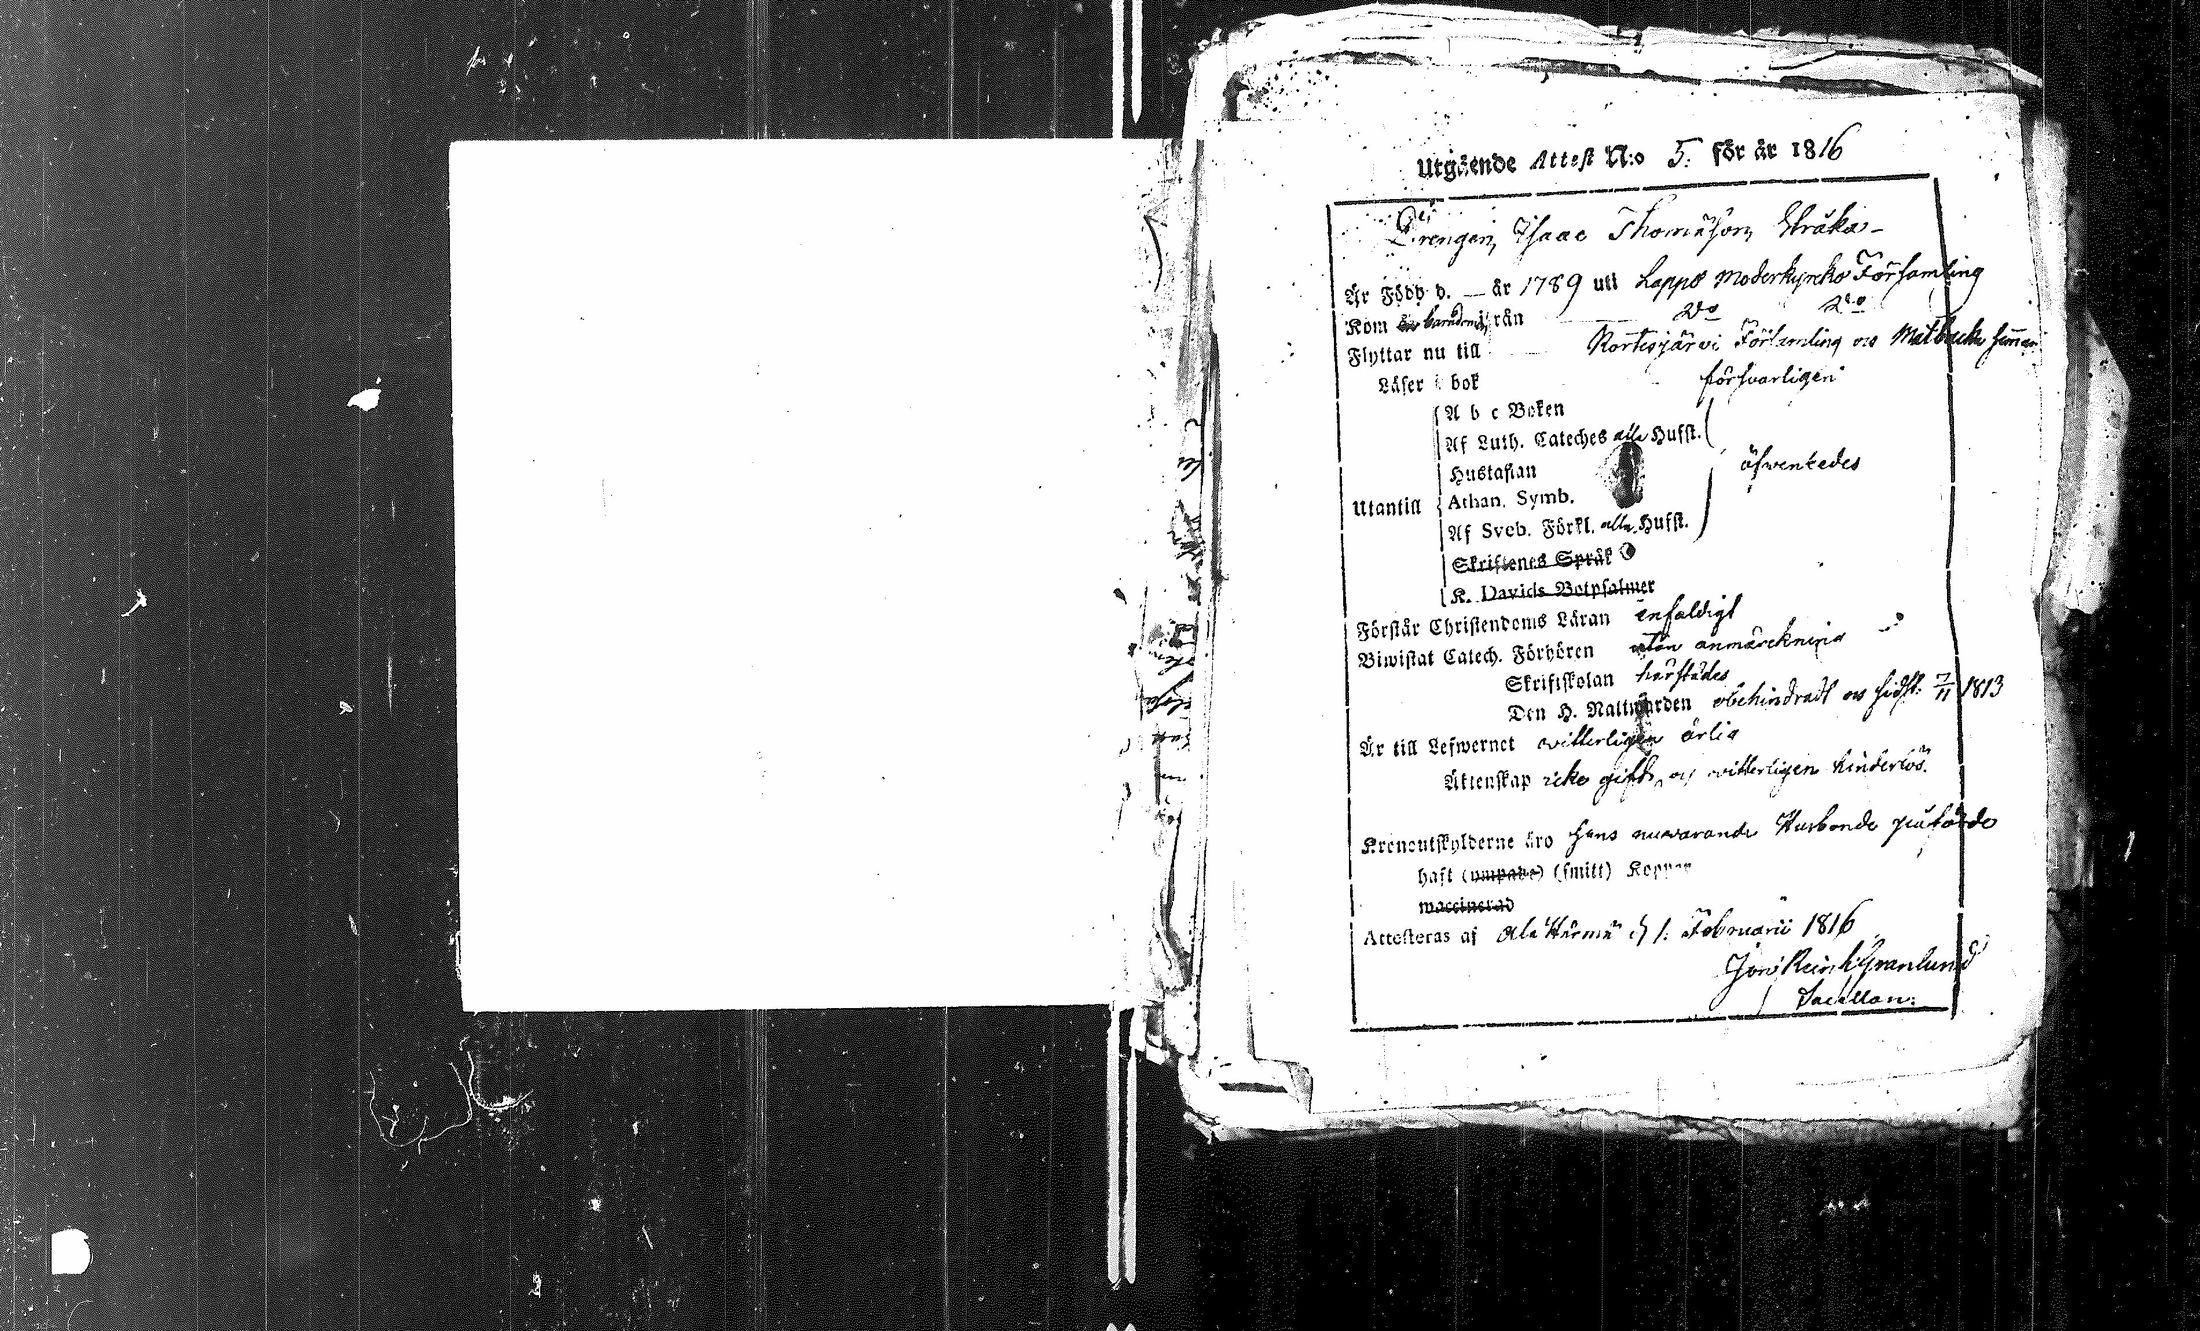 Utgående Attest N:o 5. för år 1816
Drengen, Isaac Thomasson, Stråka-
Är Född d. — år 1789 uti Lappo Moderkyrko Församling
Kom från D:o D:o
Flyttar nu till Kortesjärvi Församling os Matback hemman
Läser i bok försvarligen
A b c Boken
Af Luth. Cateches alla Hufst.
Hustaflan öfwenledes
Utantill Athan. Symb.
Af Sveb. Förkl. alla Hufst.
Skriftenes Språk
K. Davids Botpsalmer
Förstår Christendoms Läran enfaldigt
Biwistat Catech. Förhören utan anmärckning
Skriftskolan härstädes
Den H. Nattwarden obehindradt os sidst. 7/11 1813
Är till Lefwernet witterligen ärlig
Äktenskap icke gift, os witterligen hinderlös.
Kronoutskylderne äro hans nuvarande Husbonde påförde
haft (umpade) (smitt) Koppor
waccinerad
Attesteras af Ala Härmä d. 1. Februarii 1816
Joh: Reinh: Granlund
Sacellan: